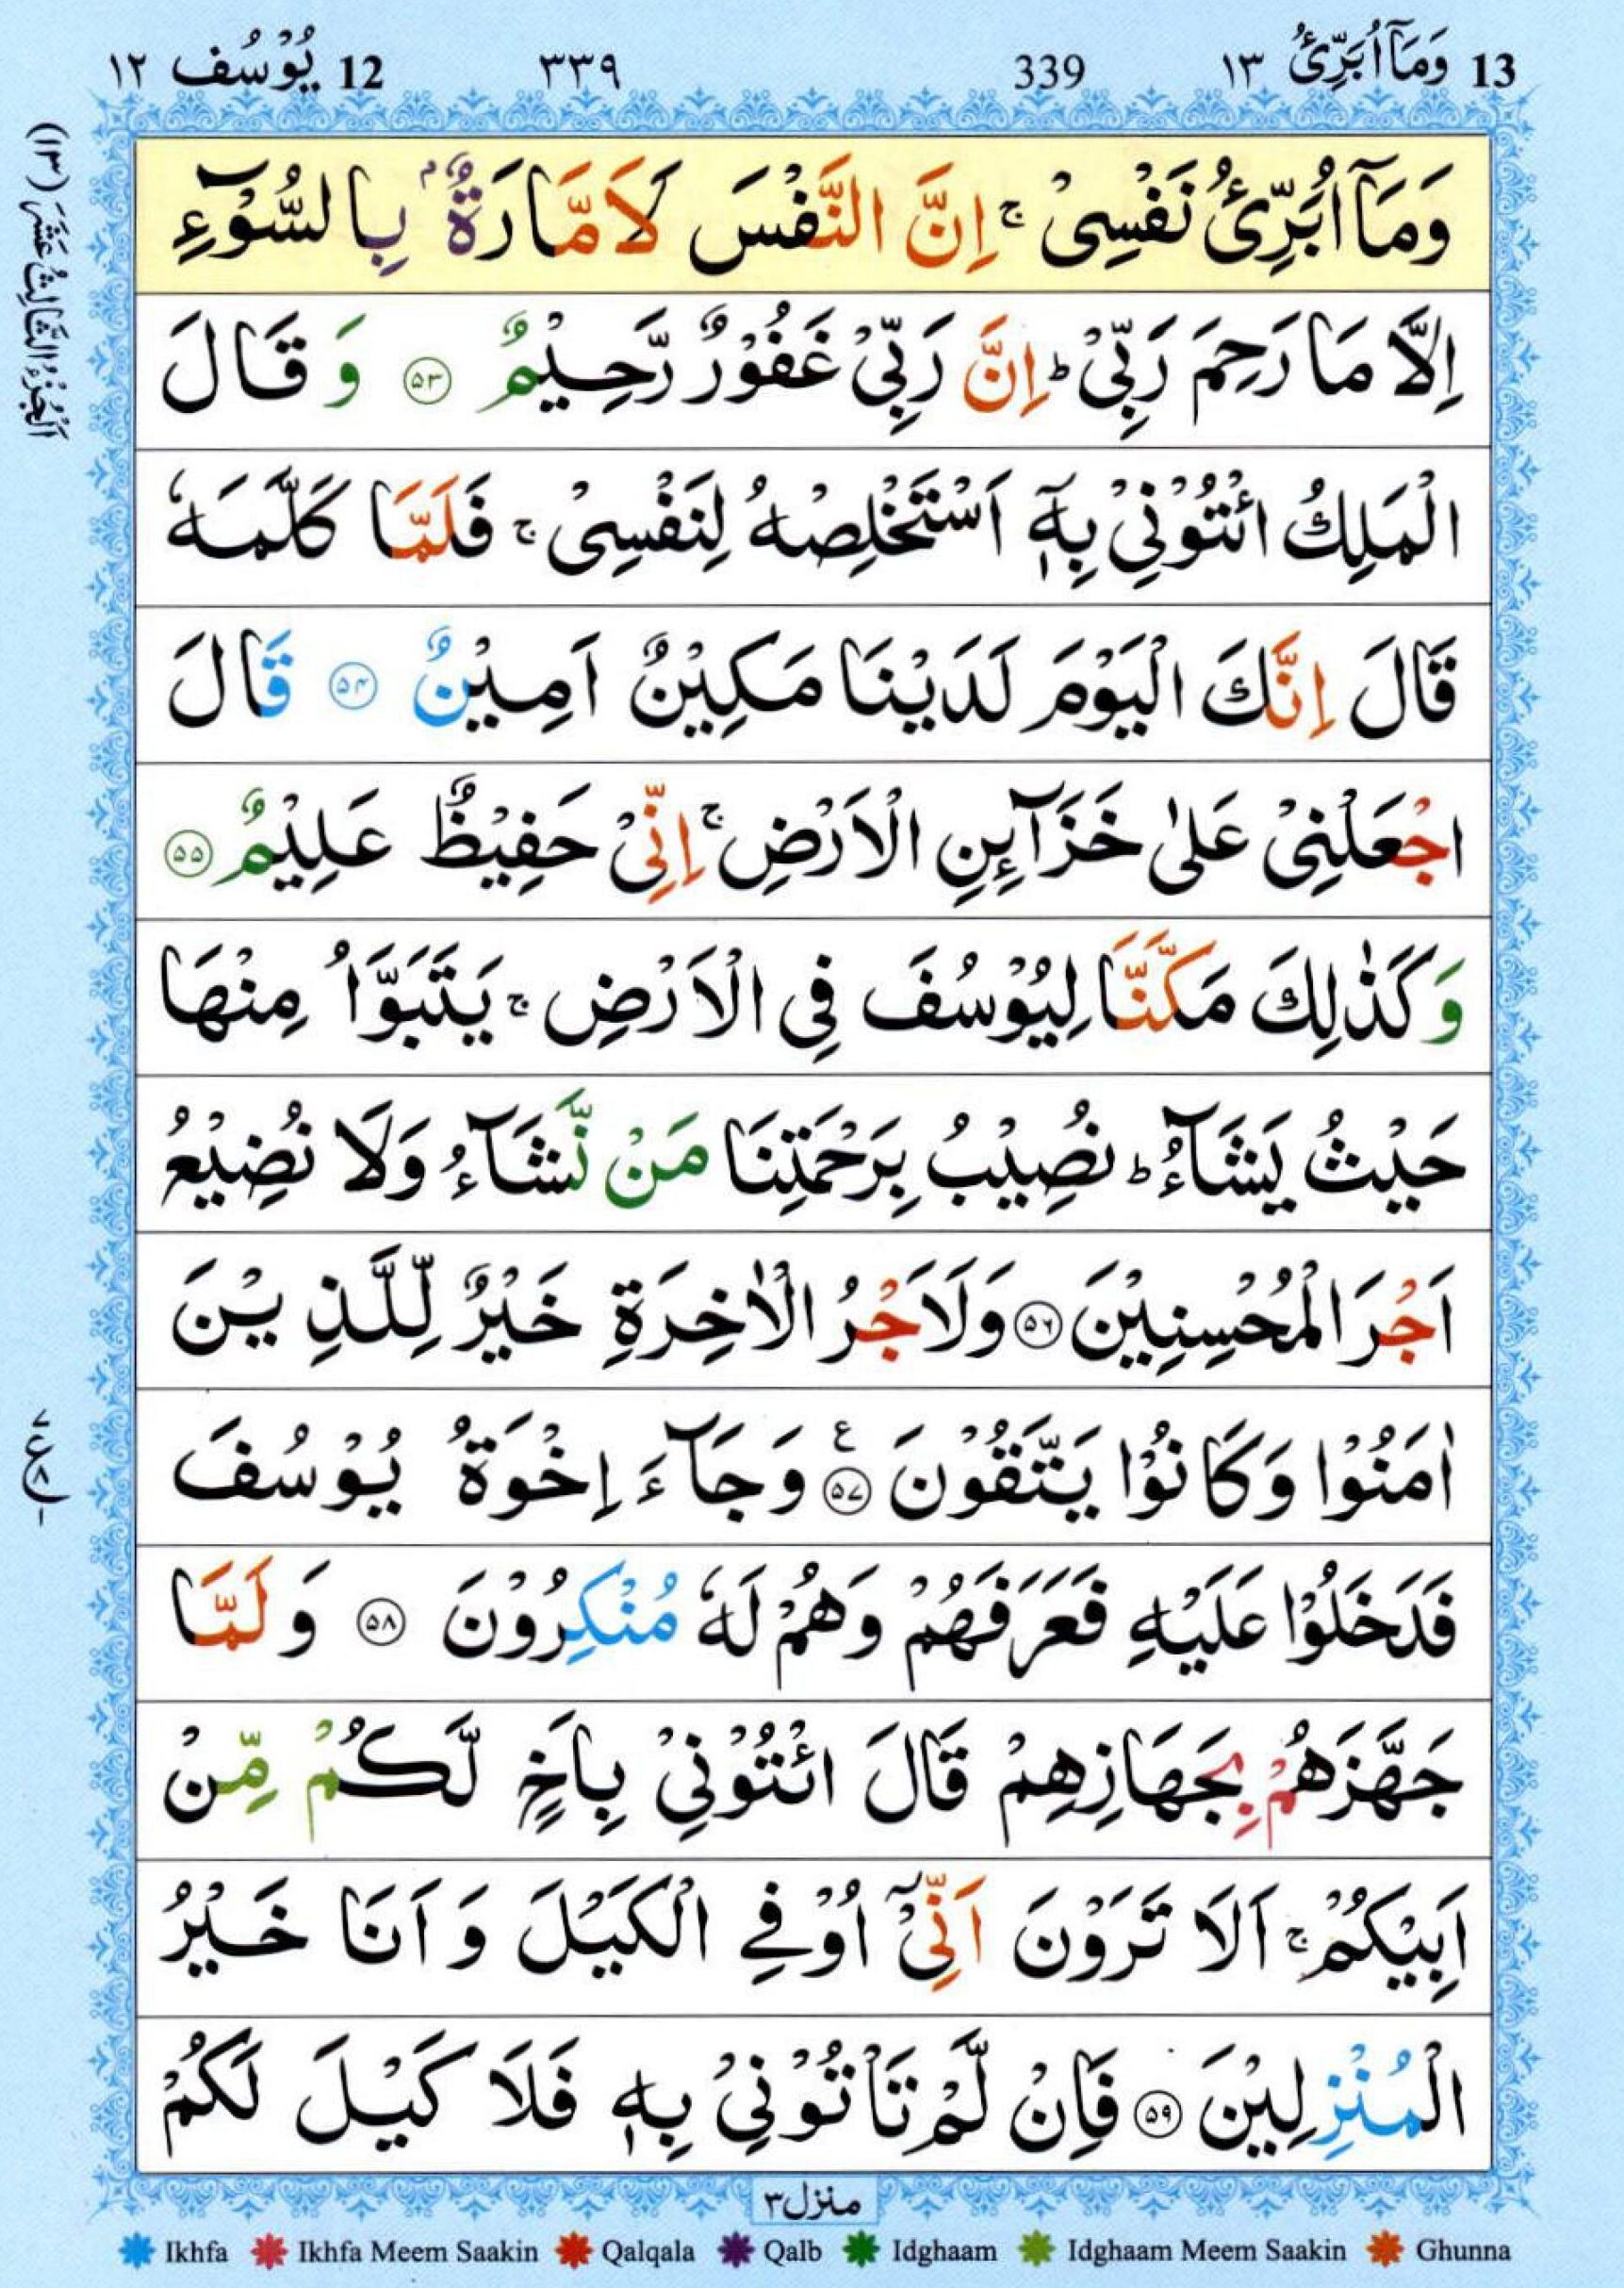 13 وَمَآ اُبَرِّئُ ١٣ 339 ٣٣٩ 12 يُوْسُف ١٢
اَلْجُزْءُ الثَّالِثُ عَشَرَ (١٣)
وَمَآ اُبَرِّئُ نَفْسِىْ ۚ اِنَّ النَّفْسَ لَاَمَّارَةٌۢ بِالسُّوْٓءِ
اِلَّا مَا رَحِمَ رَبِّىْ ؕ اِنَّ رَبِّىْ غَفُوْرٌ رَّحِيْمٌ ۝۵۳ وَ قَالَ
الْمَلِكُ ائْتُوْنِىْ بِهٖٓ اَسْتَخْلِصْهُ لِنَفْسِىْ ۚ فَلَمَّا كَلَّمَهٗ
قَالَ اِنَّكَ الْيَوْمَ لَدَيْنَا مَكِيْنٌ اَمِيْنٌ ۝۵۴ قَالَ
اجْعَلْنِىْ عَلٰى خَزَآئِنِ الْاَرْضِ ۚ اِنِّىْ حَفِيْظٌ عَلِيْمٌ ۝۵۵
وَ كَذٰلِكَ مَكَّنَّا لِيُوْسُفَ فِى الْاَرْضِ ۚ يَتَبَوَّاُ مِنْهَا
حَيْثُ يَشَآءُ ؕ نُصِيْبُ بِرَحْمَتِنَا مَنْ نَّشَآءُ وَلَا نُضِيْعُ
اَجْرَ الْمُحْسِنِيْنَ ۝۵۶ وَلَاَجْرُ الْاٰخِرَةِ خَيْرٌ لِّلَّذِيْنَ
اٰمَنُوْا وَكَانُوْا يَتَّقُوْنَ ۝۵۷ ع وَجَآءَ اِخْوَةُ يُوْسُفَ
فَدَخَلُوْا عَلَيْهِ فَعَرَفَهُمْ وَهُمْ لَهٗ مُنْكِرُوْنَ ۝۵۸ وَلَمَّا
جَهَّزَهُمْ بِجَهَازِهِمْ قَالَ ائْتُوْنِىْ بِاَخٍ لَّكُمْ مِّنْ
اَبِيْكُمْ ۚ اَلَا تَرَوْنَ اَنِّىْٓ اُوْفِى الْكَيْلَ وَ اَنَا خَيْرُ
الْمُنْزِلِيْنَ ۝۵۹ فَاِنْ لَّمْ تَاْتُوْنِىْ بِهٖ فَلَا كَيْلَ لَكُمْ
منزل ٣
Ikhfa Ikhfa Meem Saakin Qalqala Qalb Idghaam Idghaam Meem Saakin Ghunna